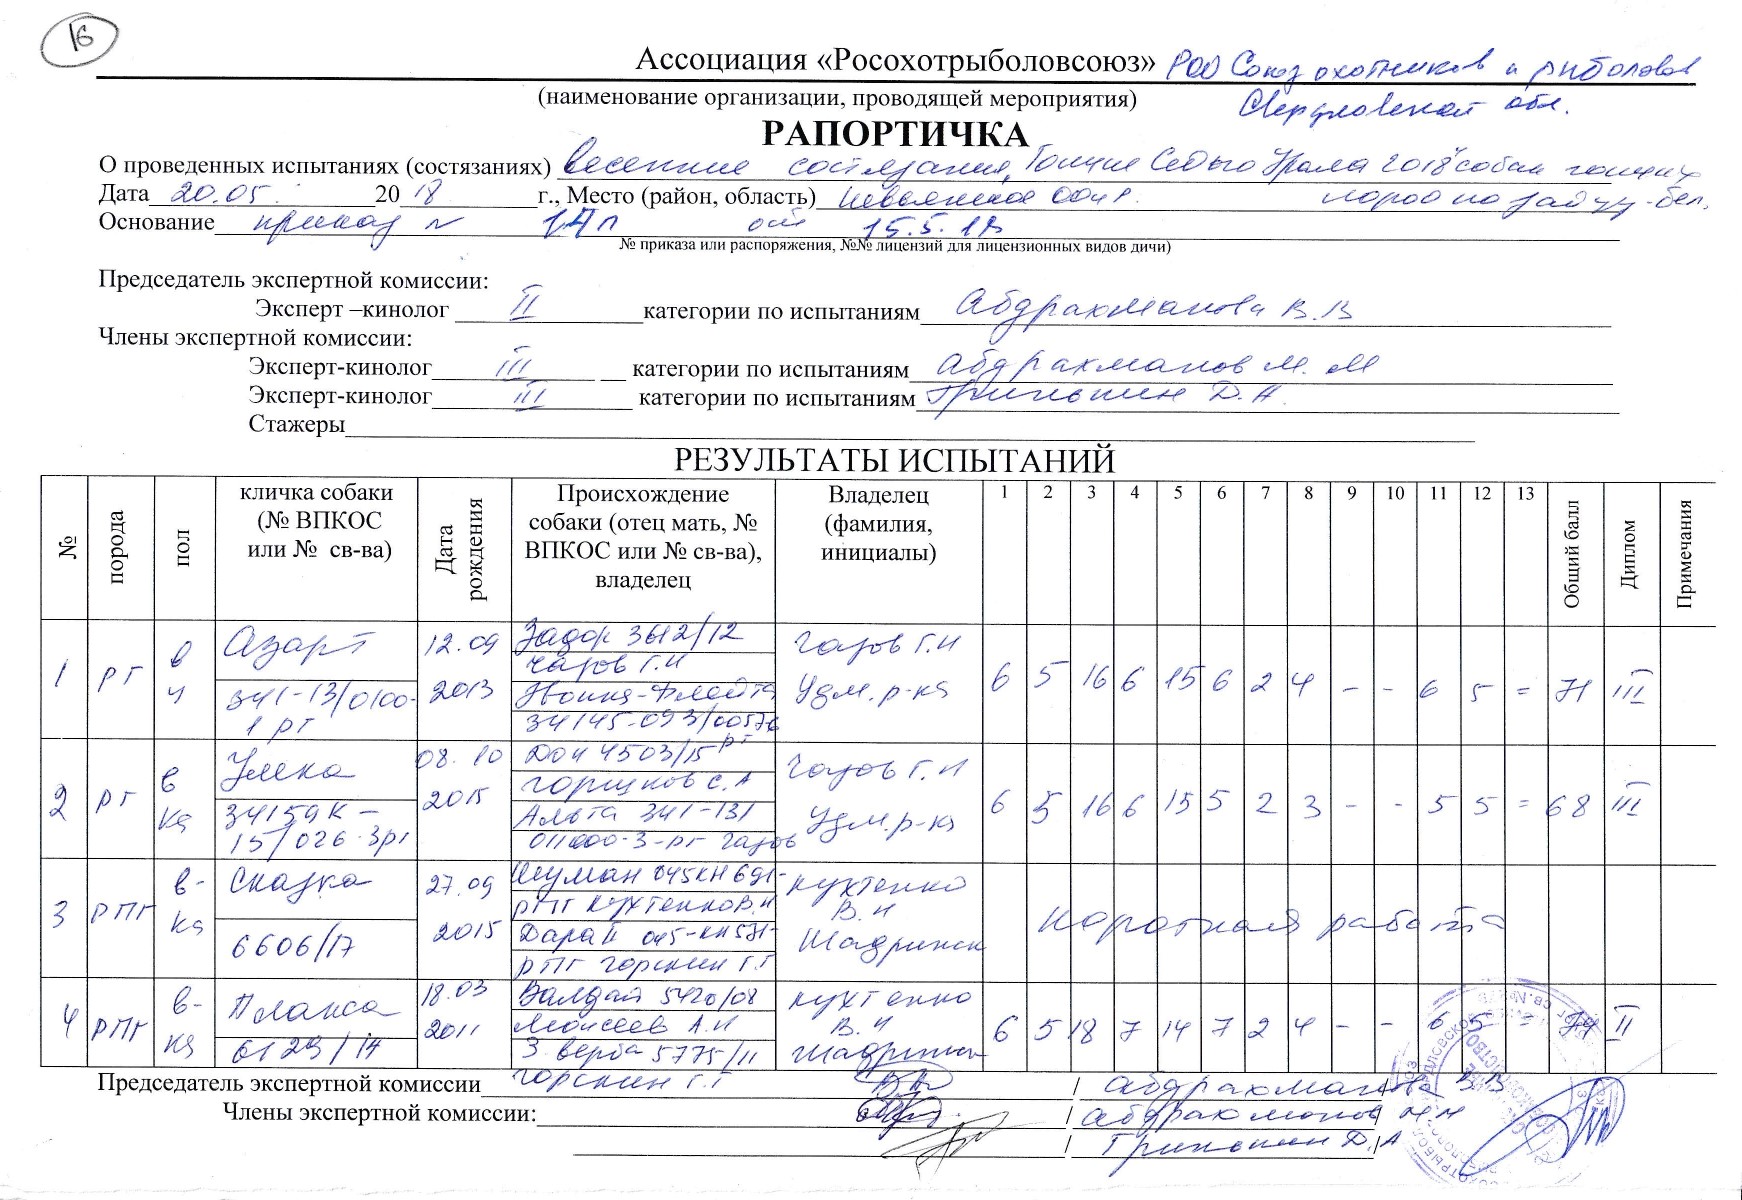 16
Ассоциация «Росохотрыболовсоюз» РОО Союз охотников и рыболовов
(наименование организации, проводящей мероприятия) Свердловской обл.
РАПОРТИЧКА
О проведенных испытаниях (состязаниях) весенние состязания, Гончие Седого Урала 2018 собак гончих
Дата 20.05. 2018 г., Место (район, область) Невьянское ООиР. пород по зайцу-бел.
Основание приказ № 17п от 15.5.18
№ приказа или распоряжения, №№ лицензий для лицензионных видов дичи)
Председатель экспертной комиссии:
Эксперт –кинолог II категории по испытаниям Абдрахманова В.В
Члены экспертной комиссии:
Эксперт-кинолог III категории по испытаниям Абдрахманов М.М
Эксперт-кинолог III категории по испытаниям Гринькин Д.А.
Стажеры
РЕЗУЛЬТАТЫ ИСПЫТАНИЙ
№ порода пол кличка собаки (№ ВПКОС или № св-ва) Дата рождения Происхождение собаки (отец мать, № ВПКОС или № св-ва), владелец Владелец (фамилия, инициалы) 1 2 3 4 5 6 7 8 9 10 11 12 13 Общий балл Диплом Примечания
1 РГ Азарт 12.09 2013 Задор 3612/12 Чазов Г.И Удм. р-ка 6 5 16 6 15 6 2 4 - - 6 5 = 71 III
2 РГ в ка Умка 08.10 2015 Дон 4503/15 Горшков С.А Альта 341-131 Удм. р-ка 6 5 16 6 15 5 2 3 - - 5 5 = 68 III
3 РПГ в-ка Сказка 6606/17 27.09 2015 Шуман 045КН691-РПГ Кухтенко В.И РПГ Горскин Г.Г Кухтенко В.И Шадринск Короткая работа
4 РПГ в-ка Плакса 6129/14 18.03 2011 Валдай 5420/08 Моисеев А.И Верба 5775/11 Горскин Г.Г Кухтенко В.И 6 5 18 7 14 7 2 4 - - 6 5 = 74 II
Председатель экспертной комиссии / Абдрахманова В.В
Члены экспертной комиссии: / Абдрахманов М.М
/ Гринькин Д.А